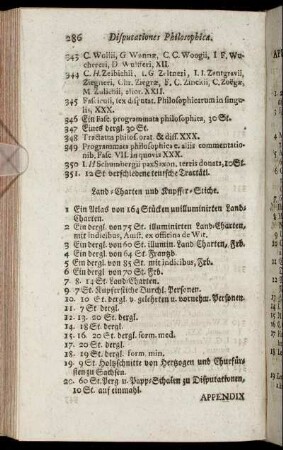 286 Disputationes Philosophicæ.
343 C. Wollii, G Wonnæ, C. C. Woogii, I F. Wu-
chereri, D Wulfferi, XII.
344 C. H. Zeibichii, I. G Zeltneri, I. I. Zentgravii,
Ziegneri, Chr. Ziegræ, F. C. Zinckii, C. Zoëgæ
M. Zulichii, alior. XXII.
345 Fasciculi, sex disputat. Philosophicarum in singu-
lis, XXX.
346 Ein Fasc. programmata philosophica, 30 St.
347 Eines dergl. 30 St.
348 Tractatus philos. orat. & diss. XXX.
349 Programmata philosophica c. aliis commentatio-
nib, Fasc. VII. in quovis XXX.
350 I. H Schumbergii pax Saxon. terris donata, 10 St.
351. 12 St verschiedene teutsche Tractätl.
Land-Charten und Kupffer-Stiche.
1 Ein Atlas von 164 Stücken unilluminirten Land-
Charten.
2 Ein dergl. von 75 St. illuminirten Land-Charten,
mit indicibus, Amst. ex officina de Wit.
3 Ein dergl. von 60 St. illumin. Land Charten, Frb.
4 Ein dergl. von 64 St. Frantzb.
5 Ein dergl. von 85 St. mit indicibus, Frb.
6 Ein dergl. von 70 St. Frb.
7 8. 14 St. Land-Charten.
9 7 St. Kupferstiche Durchl. Personen.
10. 10 St. dergl. v. gelehrten u. vornehm. Personen.
11. 7 St. dergl.
12. 13. 20 St. dergl.
14. 18 St. dergl.
15. 16. 20 St. dergl. form. med.
17. 20 St. dergl.
18. 19 St. dergl. form min.
19. 9 St. Holtzschnitte von Hertzogen und Churfür-
sten zu Sachsen.
20. 60 St. Perg. u. Papp-Schalen zu Disputationen,
10 St. auf einmahl.
APPENDIX